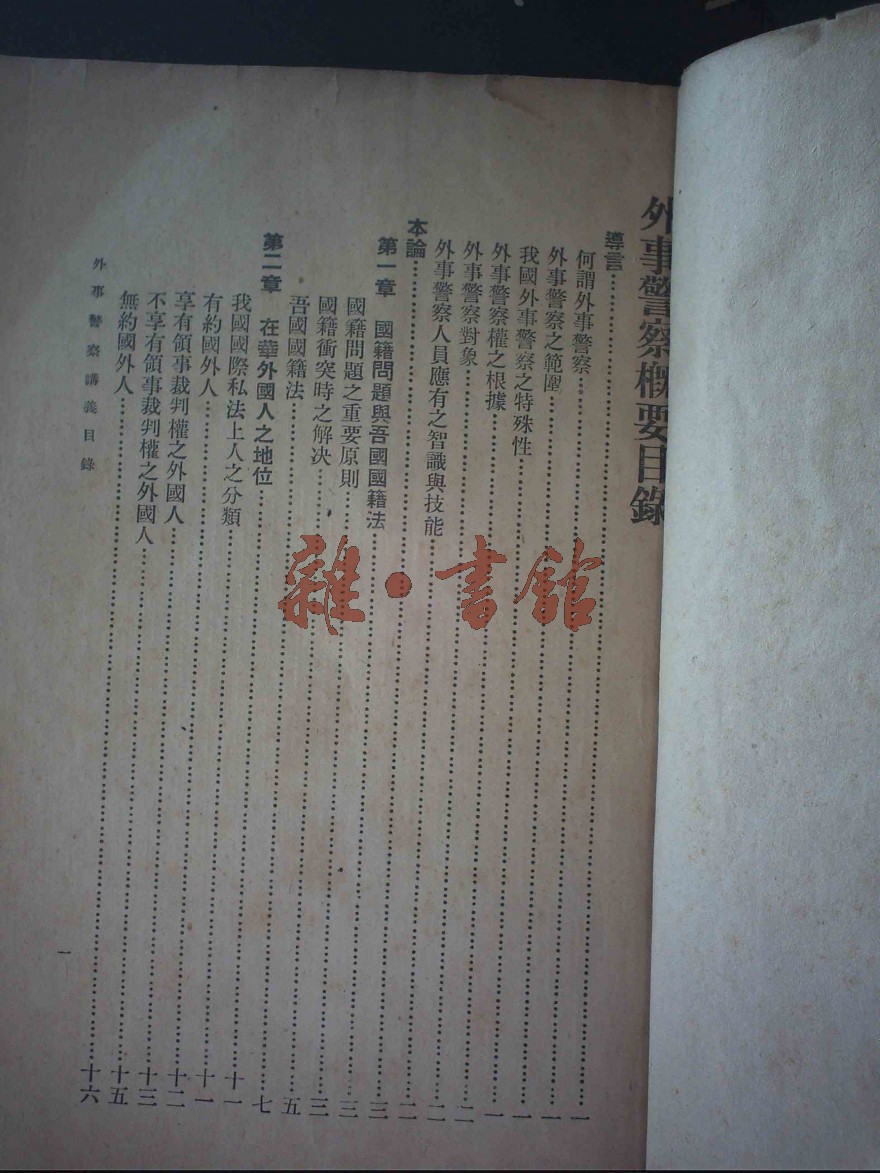 外事警察概要目錄
導言……一
何謂外事警察……一
外事警察之範圍……一
我國外事警察之特殊性……一
外事警察權之根據……二
外事警察對象……二
外事警察人員應有之智識與技能……二
本論……三
第一章　國籍問題與吾國國籍法……三
國籍問題之重要原則……三
國籍衝突時之解決……五
吾國國籍法……七
第二章　在華外國人之地位……十一
我國國際私法上人之分類……十一
有約國外人……十二
享有領事裁判權之外國人……十三
不享有領事裁判權之外國人……十五
無約國外人……十六
外事警察講義目錄
一
雜·書館